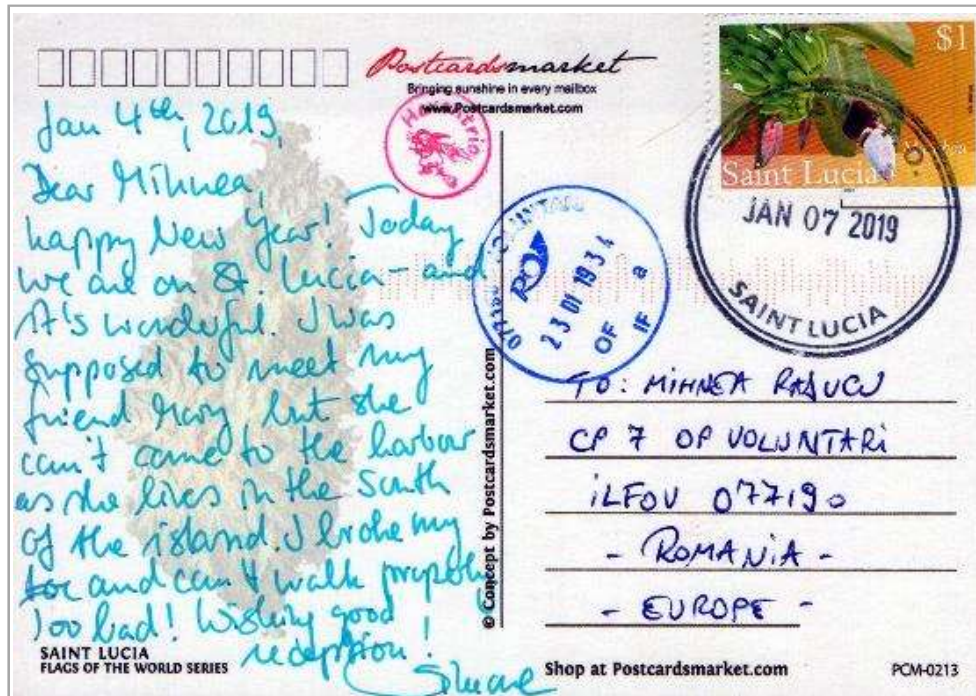 Postcardsmarket
Bringing sunshine in every mailbox
www.Postcardsmarket.com
$1
Saint Lucia
JAN 07 2019
SAINT LUCIA
23 01 19 3 4
OF a
IF
Jan 4th, 2019,
Dear Mihnea,
happy New Year! Today
we are on St. Lucia - and
it's wonderful. I was
supposed to meet my
friend Mary but she
can't come to the harbour
as she lives in the South
of the island. I broke my
toe and can't walk properly
Too bad! Wishing good
reception!
© Concept by Postcardsmarket.com
TO: MIHNEA RADUCU
CP 7 OP VOLUNTARI
ILFOV 077190
- ROMANIA -
- EUROPE -
SAINT LUCIA
FLAGS OF THE WORLD SERIES
Shop at Postcardsmarket.com
PCM-0213